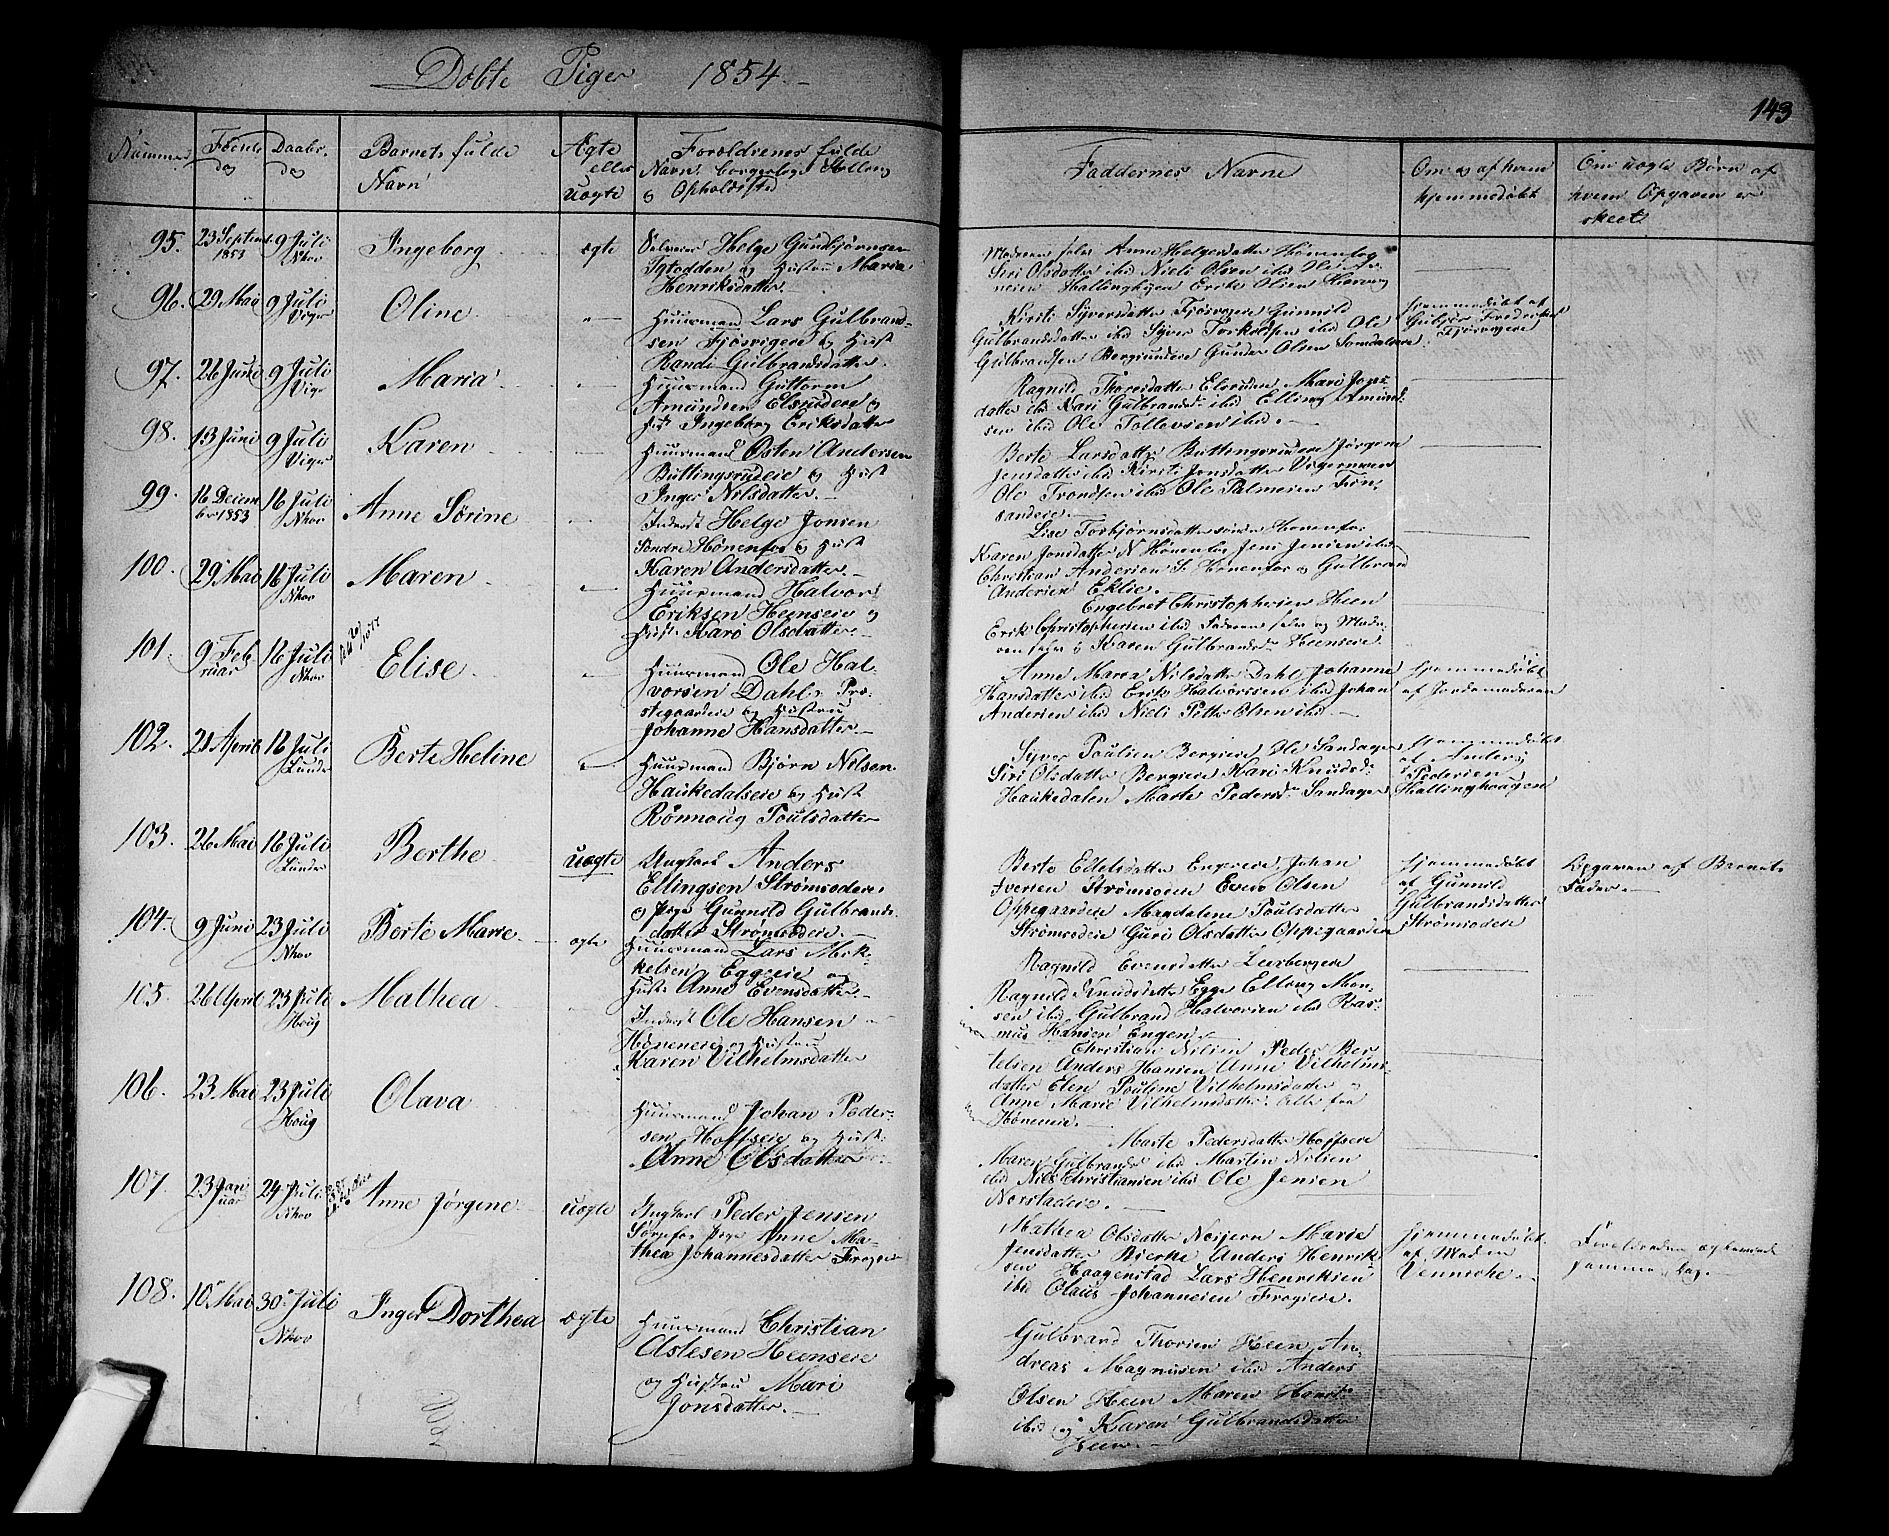 Døbte Piger 1854
143
Nummer
Føents dag
Daabs dag
Barnets fulde Navn
Ægte eller Uægte
Forældrenes fulde Navn, borgerlige Stilling og Opholdsted
Faddernes Navne
Om og af hvem hjemmedøbt
Om uægte Børn af hvem Opgaven er skeet
95. 23 Septem 1853 9 Juli Nhov Ingeborg ægte
Helge Gundbjørnsen
og Hustru Maria
Henriksdatter
Moderen selv Anne Helgesdatter Hønenfos
Siri Olsdatter ibid Niels Olsen ibid
Erik Olsen
96. 29 Mai 9 Juli Viger Oline
Huusmand Lars Gulbrand-
sen Fjøsvigeie og Hust
Randi Gulbrandsdatter.
Kirsti Syversdatter Fjøsvigeie Gunnild
Gulbrandsdatter ibid Syver Torkildsen ibid Ole
Gulbrandsen Bergsundeie Gunder Olsen
Hjemmedøbt af
Fjøsvigeie
97. 26 Juni 9 Juli Vigr Maria
Huusmand Guttorm
Amundsen Elsrudeie og
Hust Ingeborg Eriksdatter
Ragnild Thoresdatter Elsruden Mari Jons-
datter ibid Kari Gulbrandsd. ibid Elling Amund-
sen ibid Ole Tollevsen ibid.
98. 13 Juni 9 Juli Viger Karen
Huusmand Østen Andersen
Büttingsrudeie og Hust
Inger Nilsdatter.
Berte Larsdatter Büttingsrudeie Jørgen
Jensdatter ibid Kirsti Jonsdatter Vigerneven
Ole Trondsen ibid Ole Palmesen
99. 16 Decem ber 1853 16 Juli Nhov Anne Sørine
Inderst Helge Jonsen
Søndre Hønenfos og Hust
Karen Andersdatter.
Lise Torbjørnsdatter søndre Hønenfos
Karen Jonsdatter N Hønenfos Jens Jensen ibid
Christian Andersen S. Hønenfos og Gulbrand
Andersen Eklie.
100. 29 Mai 16 Juli Nhov Maren
Huusmand Halvor
Eriksen Heenseie og
Hust. Karo Olsdatter.
Engebret Christophersen Heen
Erik Christophersen ibid Faderen selv og Mode-
ren selv og Karen Gulbrandsd Heenseie
101. 9 Feb ruar 16 Juli Nhov Elise
Huusmand Ole Hal-
vorsen Dahl, Præ-
stegaardeie og Hustru
Johanne Hansdatter.
Anne Maria Nilsdatter Dahl Johanne
Hansdatter ibid Erik Halvorssen ibid Johan
Andersen ibid Niels Petter Olsen ibid.
Hjemmedøbt
af Jordemoderen
102. 21 April 16 Juli Lunder Berte Heline
Huusmand Bjørn Nilsen
Haukedalseie og Hust
Rønnoug Poulsdatter
Syver Poulsen Bergseie Ole Sandager
Siri Olsdatter Bergseie Kari Knudsd.
Haukedalen Marte Pedersd. Sandager
Hjemmedøbt
af Anders
Pedersen
Hallinghougen
103. 26 Mai 16 Juli Lunder Berthe uægte
Ungkarl Anders
Ellingsen Strømsoderie
og Pige Gunnild Gulbrands-
datter Strømsoderie.
Berte Edelsdatter Engereie Johan
Iversen Strømsoden Even Olsen
Oppegaardeie Magdalene Poulsdatter
Strømsoderie Guri Olsdatter Oppegaarden
Hjemmedøbt
af Gunnild
Gulbrandsdatter
Strømsoderie
Opgaven af Barnets
Fader.
104. 9 Juni 23 Juli Nhov Berte Marie ægte
Huusmand Lars Mik-
kelsen Eggeeie og
Hust. Anne Evensdatter.
Ragnild Evensdatter
Ragnild Knudsdatter Egge Elling Mon-
sen ibid Gulbrand Halvorsen ibid Ras-
mus Hansen Engen.
105. 26 April 23 Juli Houg Mathea
Inderst Ole Hansen
Høneneie og Hustru
Karen Vilhelmsdatter
Christian Nilsen Peder Ber-
telsen Anders Hansen Anne Vilhelms-
datter Elen Pouline Vilhelmsdatter og
Anne Marie Vilhelmsdatter. Alle fra
Høneneie.
106. 23 Mai 23 Juli Houg Olava
Huusmand Johan Peder-
sen Hoffseie og Hust.
Anne Olsdatter.
Marte Pedersdatter Hoffseie
Maren Gulbrandsd ibid Martin Nilsen
ibid Nils Christiansen ibid Ole Jensen
Norstadeie.
107. 23 Jan uar 24 Juli Nhov Anne Jørgene uægte
Ungkarl Peder Jensen
Pige Anne Ma-
thea Johannesdatter
Mathea Olsdatter Marie
Jensdatter Bjerke Anders Henrik-
sen Haagenstad Lars Henriksen
ibid Olaus Johannesen
Hjemmedøbt
af Maden
Vennsche.
Forældrene
108. 10 Mai 30 Juli Nhov Inger Dorthea ægte
Huusmand Christian
Astesen Heenseie
og Hustru Mari
Jonsdatter.
Gulbrand Thorsen Heen An-
dreas Magnusen ibid Anders
Olsen Heen Maren
ibid og Karen Gulbrandsdatter
Heen.